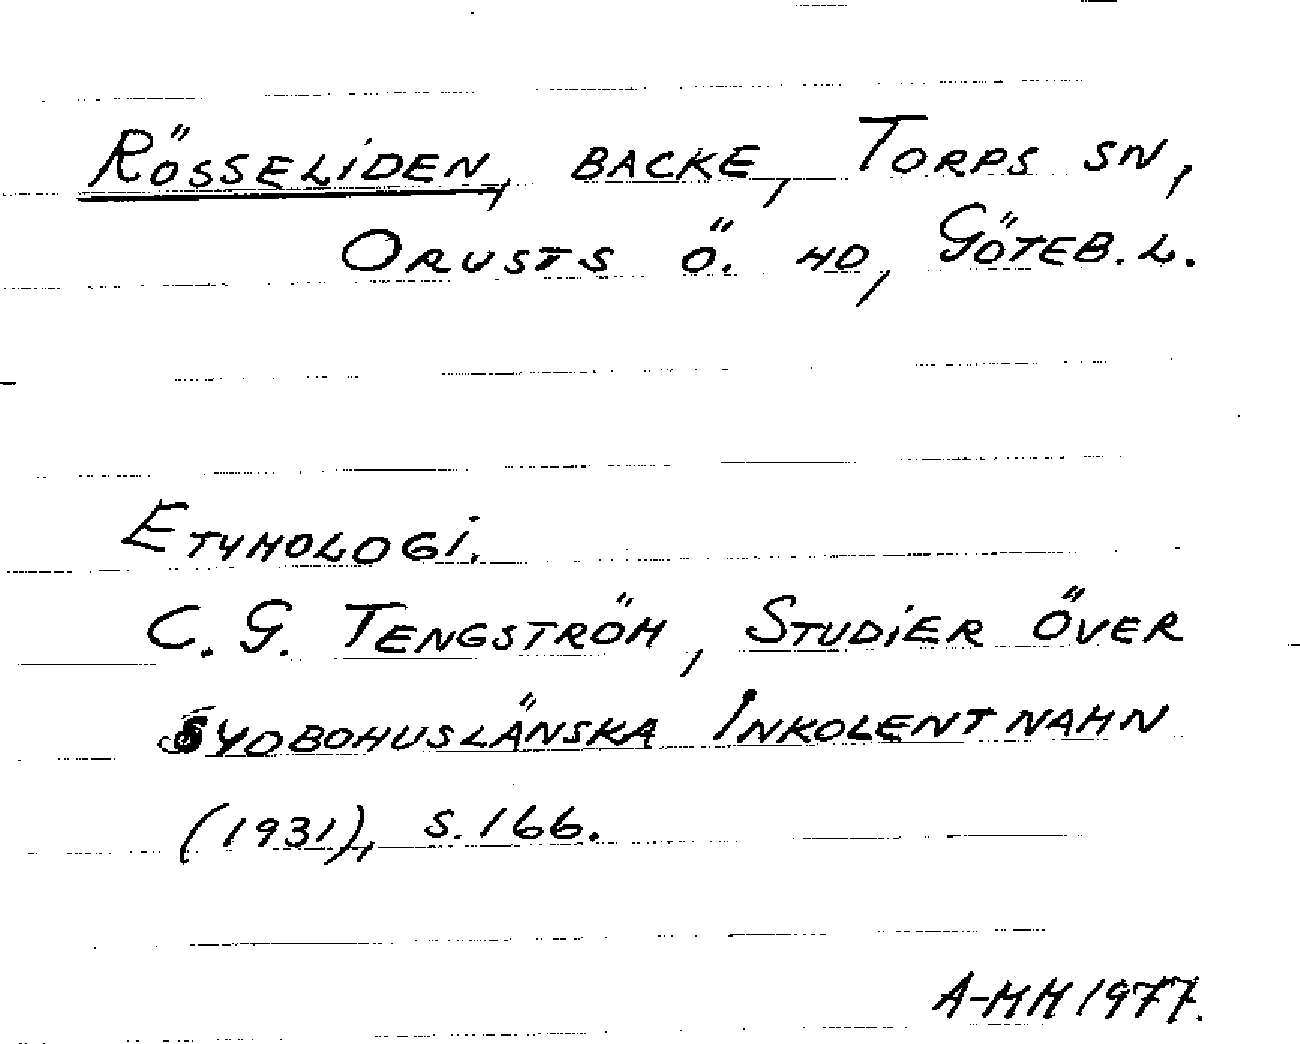 Rösseliden, backe, Torps sn,
Orusts ö. hd, Göteb. l.
Etymologi.
C. G. Tengström, Studier över
sydbohuslänska Inkolentnamn
(1931), s. 166.
A-MH 1977.